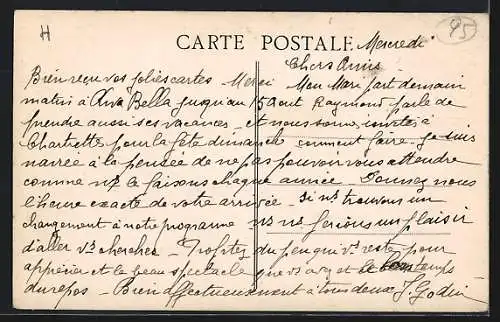 H
95
CARTE POSTALE
Mercredi
Chers Amis
Bien reçu vos jolies cartes Merci Mon Mari part demain
matin à Riva Bella jusqu'au 15 Aout Raymond parle de
prendre aussi ses vacances - et nous sommes invités à
Chartrette pour la fête dimanche comment faire. Je suis
navrée à la pensée de ne pas pouvoir vous attendre
comme ns le faisons chaque année. Donnez nous
l'heure exacte de votre arrivée - Si ns trouvons un
changement à notre programme ns ns ferions un plaisir
d'aller vs chercher - Profitez du peu qui vs reste pour
apprécier et le beau spectacle que vs avez et le temps
du repos - Bien affectueusement à tous deux J. Godin